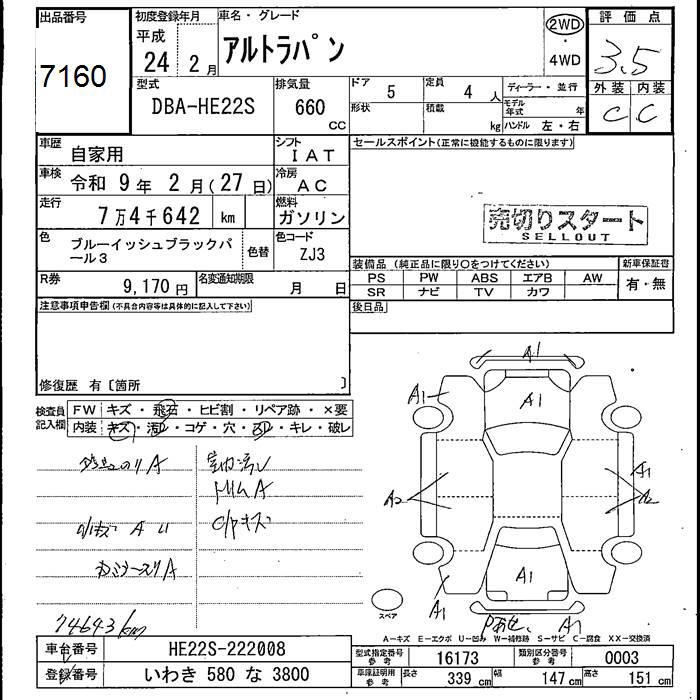 出品番号
7160
初度登録年月
平成
24 2 月
車名・グレード
アルトラパン
2WD
・
4WD
評価点
3.5
外装 内装
C C
型式
DBA-HE22S
排気量
660
CC
ドア 5
形状
定員 4 人
積載 kg
ディーラー・並行
モデル年式 年
ハンドル 左・右
車歴
自家用
シフト
IAT
車検 令和 9 年 2 月(27 日)
冷房
AC
走行
7 万 4 千 642 km
燃料
ガソリン
色
ブルーイッシュブラックパール3
色替
色コード
ZJ3
R券
9,170 円
名変通知期限
月 日
セールスポイント(正常に機能するものに限ります)
売切りスタート
SELLOUT
装備品 (純正品に限り○をつけてください)
新車保証書
PS PW ABS エアB AW
有・無
SR ナビ TV カワ
後日品
注意事項申告欄(不具合内容等は具体的に記入して下さい)
修復歴 有〔箇所 〕
検査員記入欄
FW キズ・飛石・ヒビ割・リペア跡・×要
内装 キズ・汚レ・コゲ・穴・スレ・キレ・破レ
室内汚レ
74643km
A1
A1
A1
A2
A1
A2
A1
A1
A1
スペア
A…キズ E…エクボ U…凹み W…補修跡 S…サビ C…腐食 XX…交換済
車台番号 HE22S-222008
登録番号 いわき 580 な 3800
型式指定番号 参考 16173
類別区分番号 参考 0003
車庫証明用 参考 長さ 339 cm 幅 147 cm 高さ 151 cm